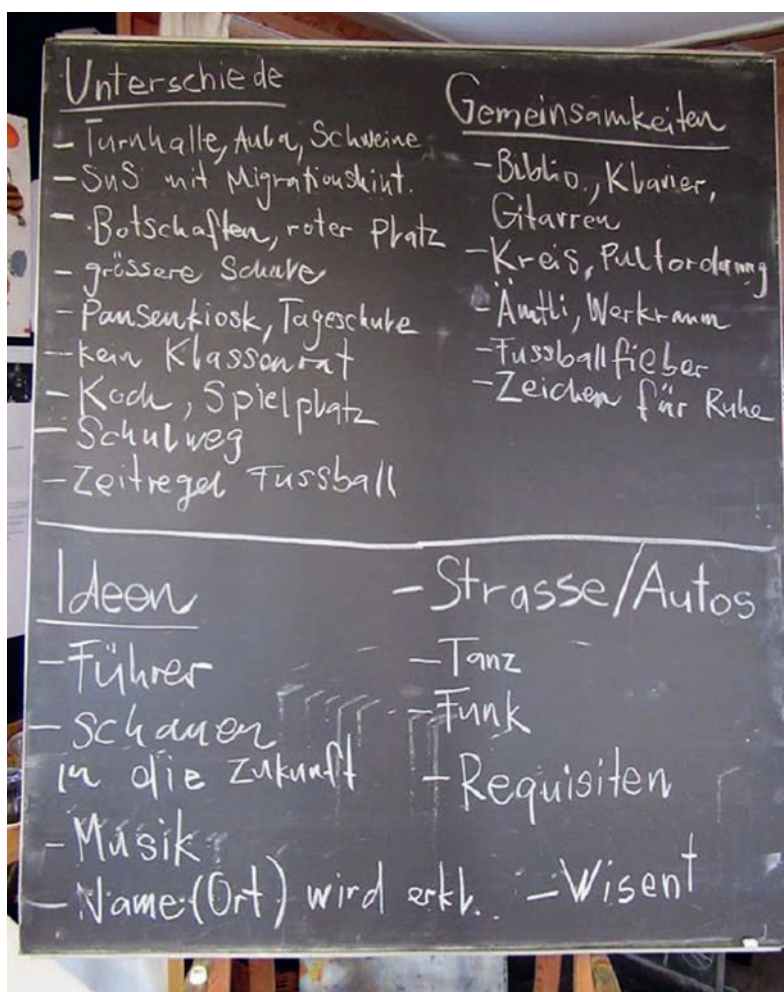 Unterschiede
- Turnhalle, Aula, Schweine
- SuS mit Migrationshint.
- Botschaften, roter Platz
- grössere Schule
- Pausenkiosk, Tageschule
- kein Klassenrat
- Koch, Spielplatz
- Schulweg
- Zeitregel Fussball
Gemeinsamkeiten
- Biblio., Klavier,
Gitarren
- Kreis, Pultordnung
- Ämtli, Werkraum
- Fussballfieber
- Zeichen für Ruhe
Ideen
- Führer
- schauen
in die Zukunft
- Musik
- Name (Ort) wird erkl.
- Strasse/Autos
- Tanz
- Funk
- Requisiten
- Wisent